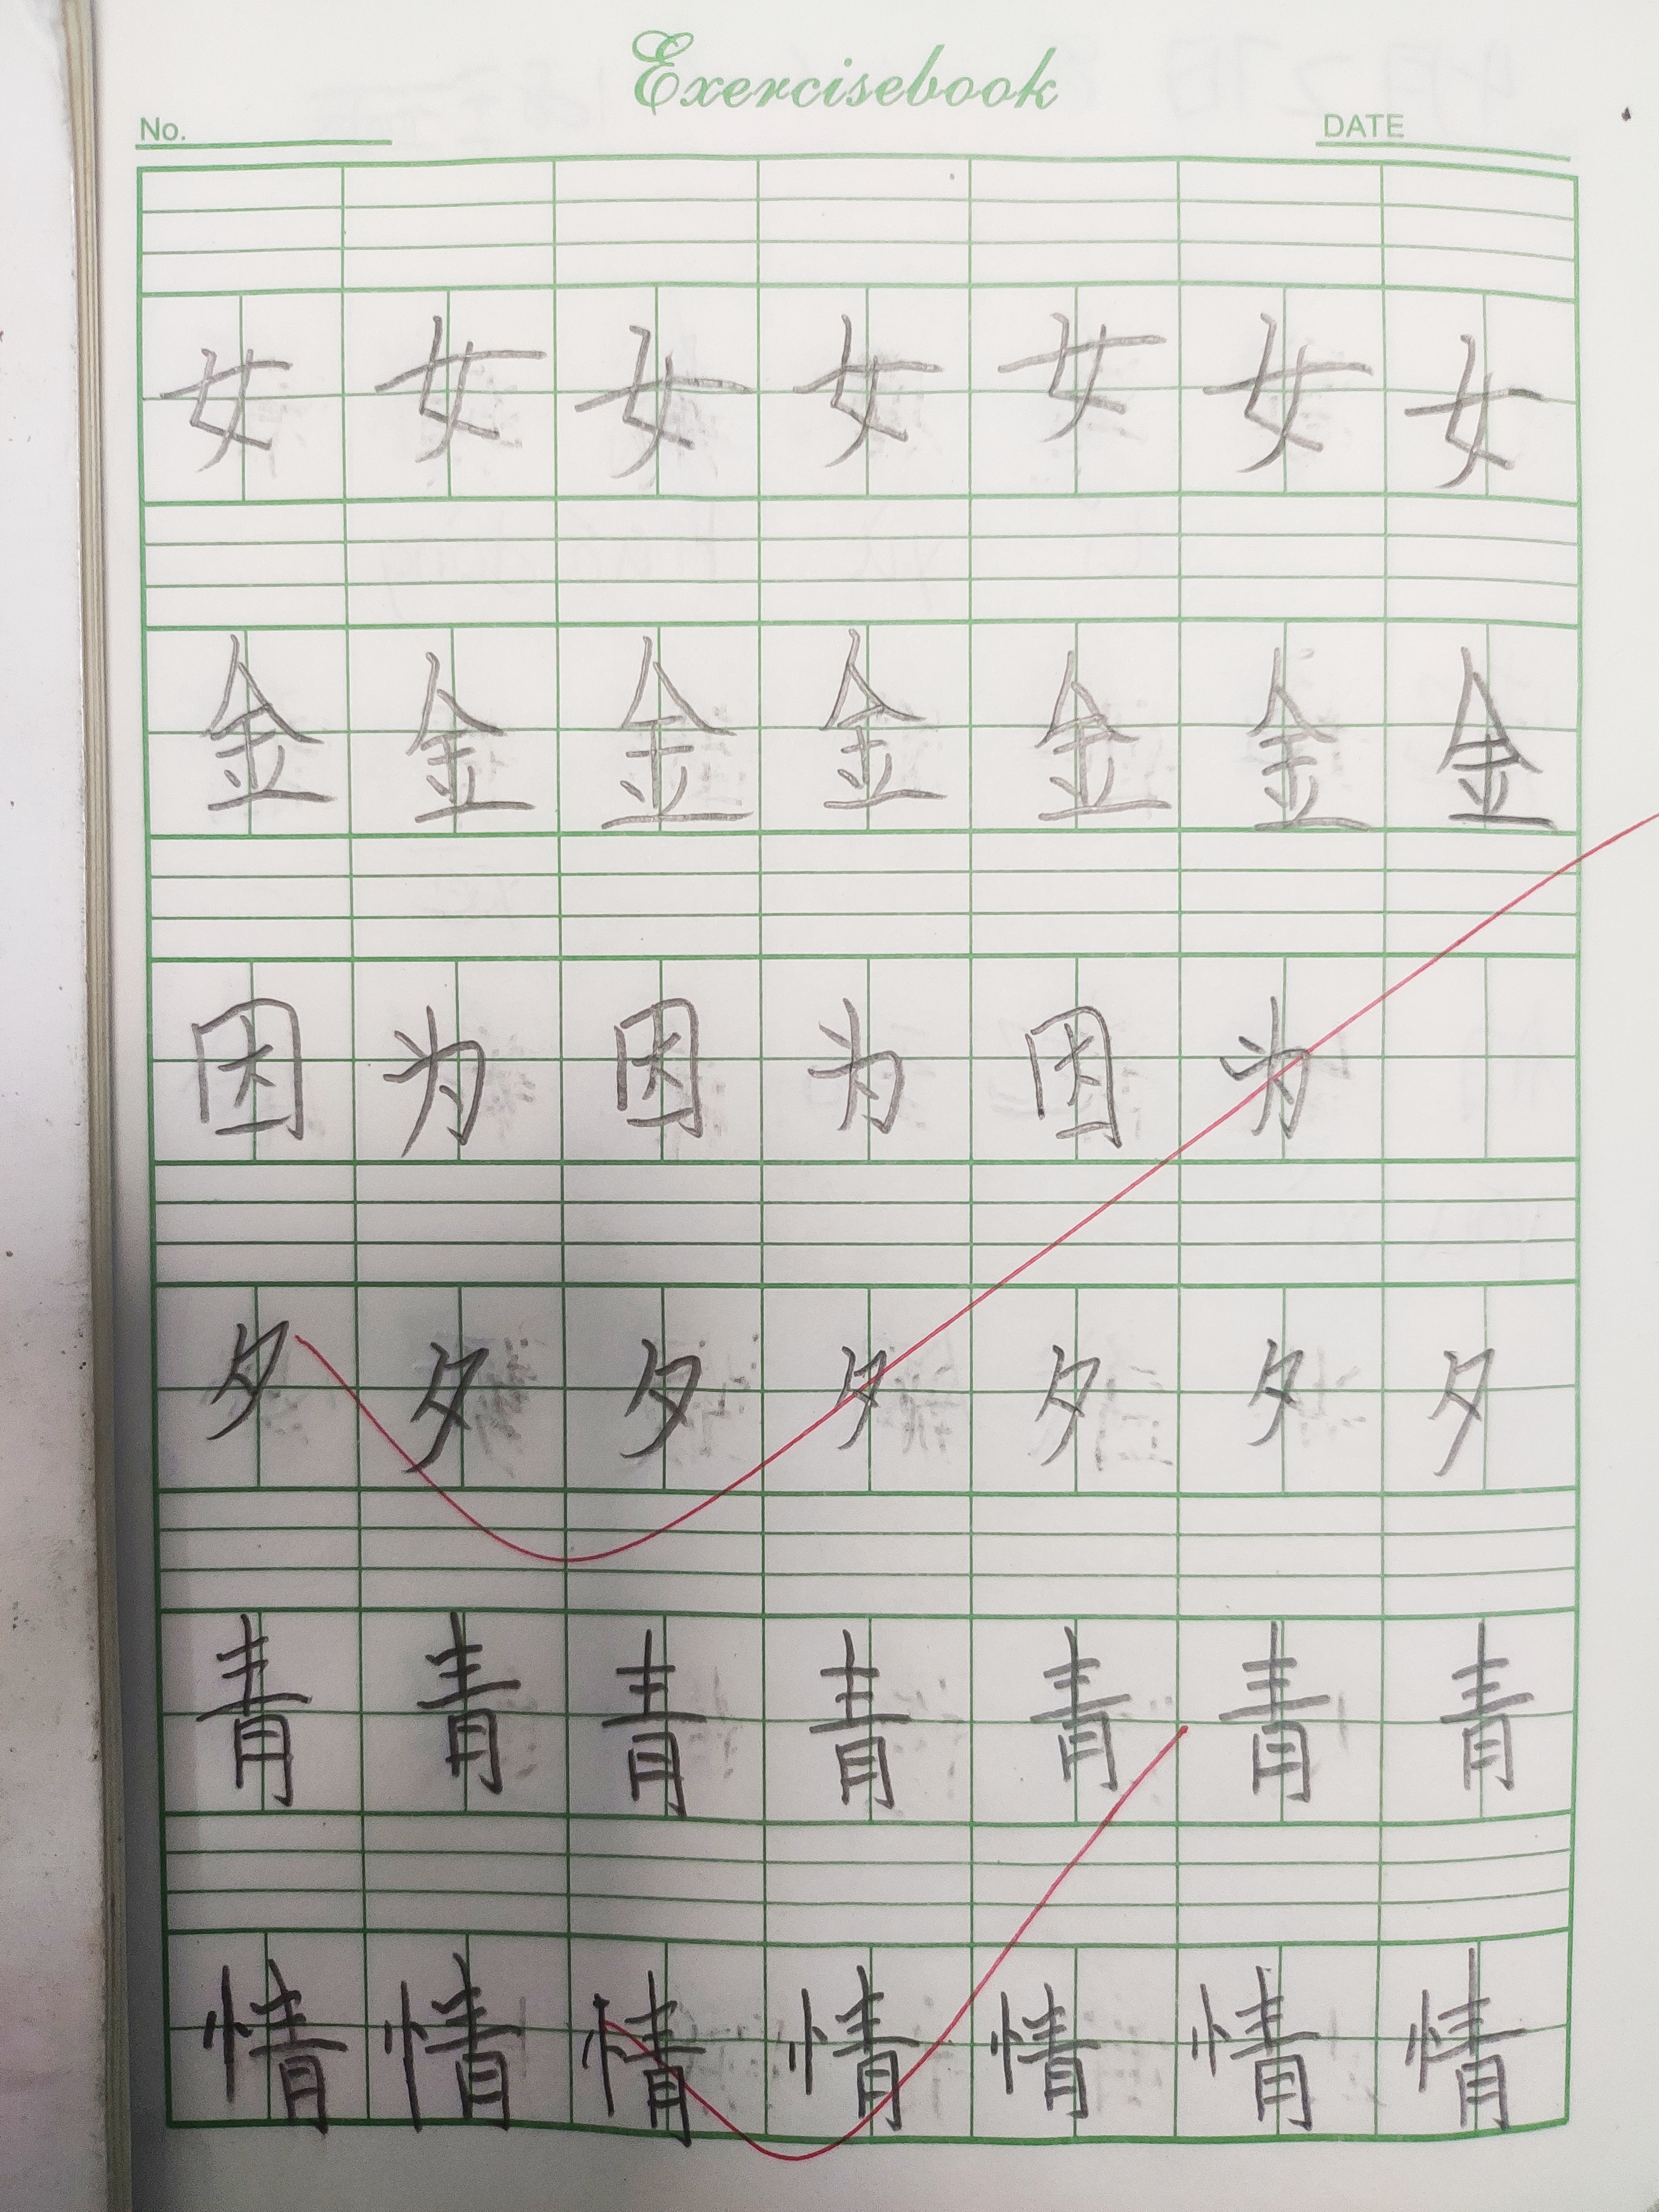 Exercisebook
No. DATE
女 女 女 女 女 女 女
金 金 金 金 金 金 金
因 为 因 为 因 为
夕 夕 夕 夕 夕 夕 夕
青 青 青 青 青 青 青
情 情 情 情 情 情 情